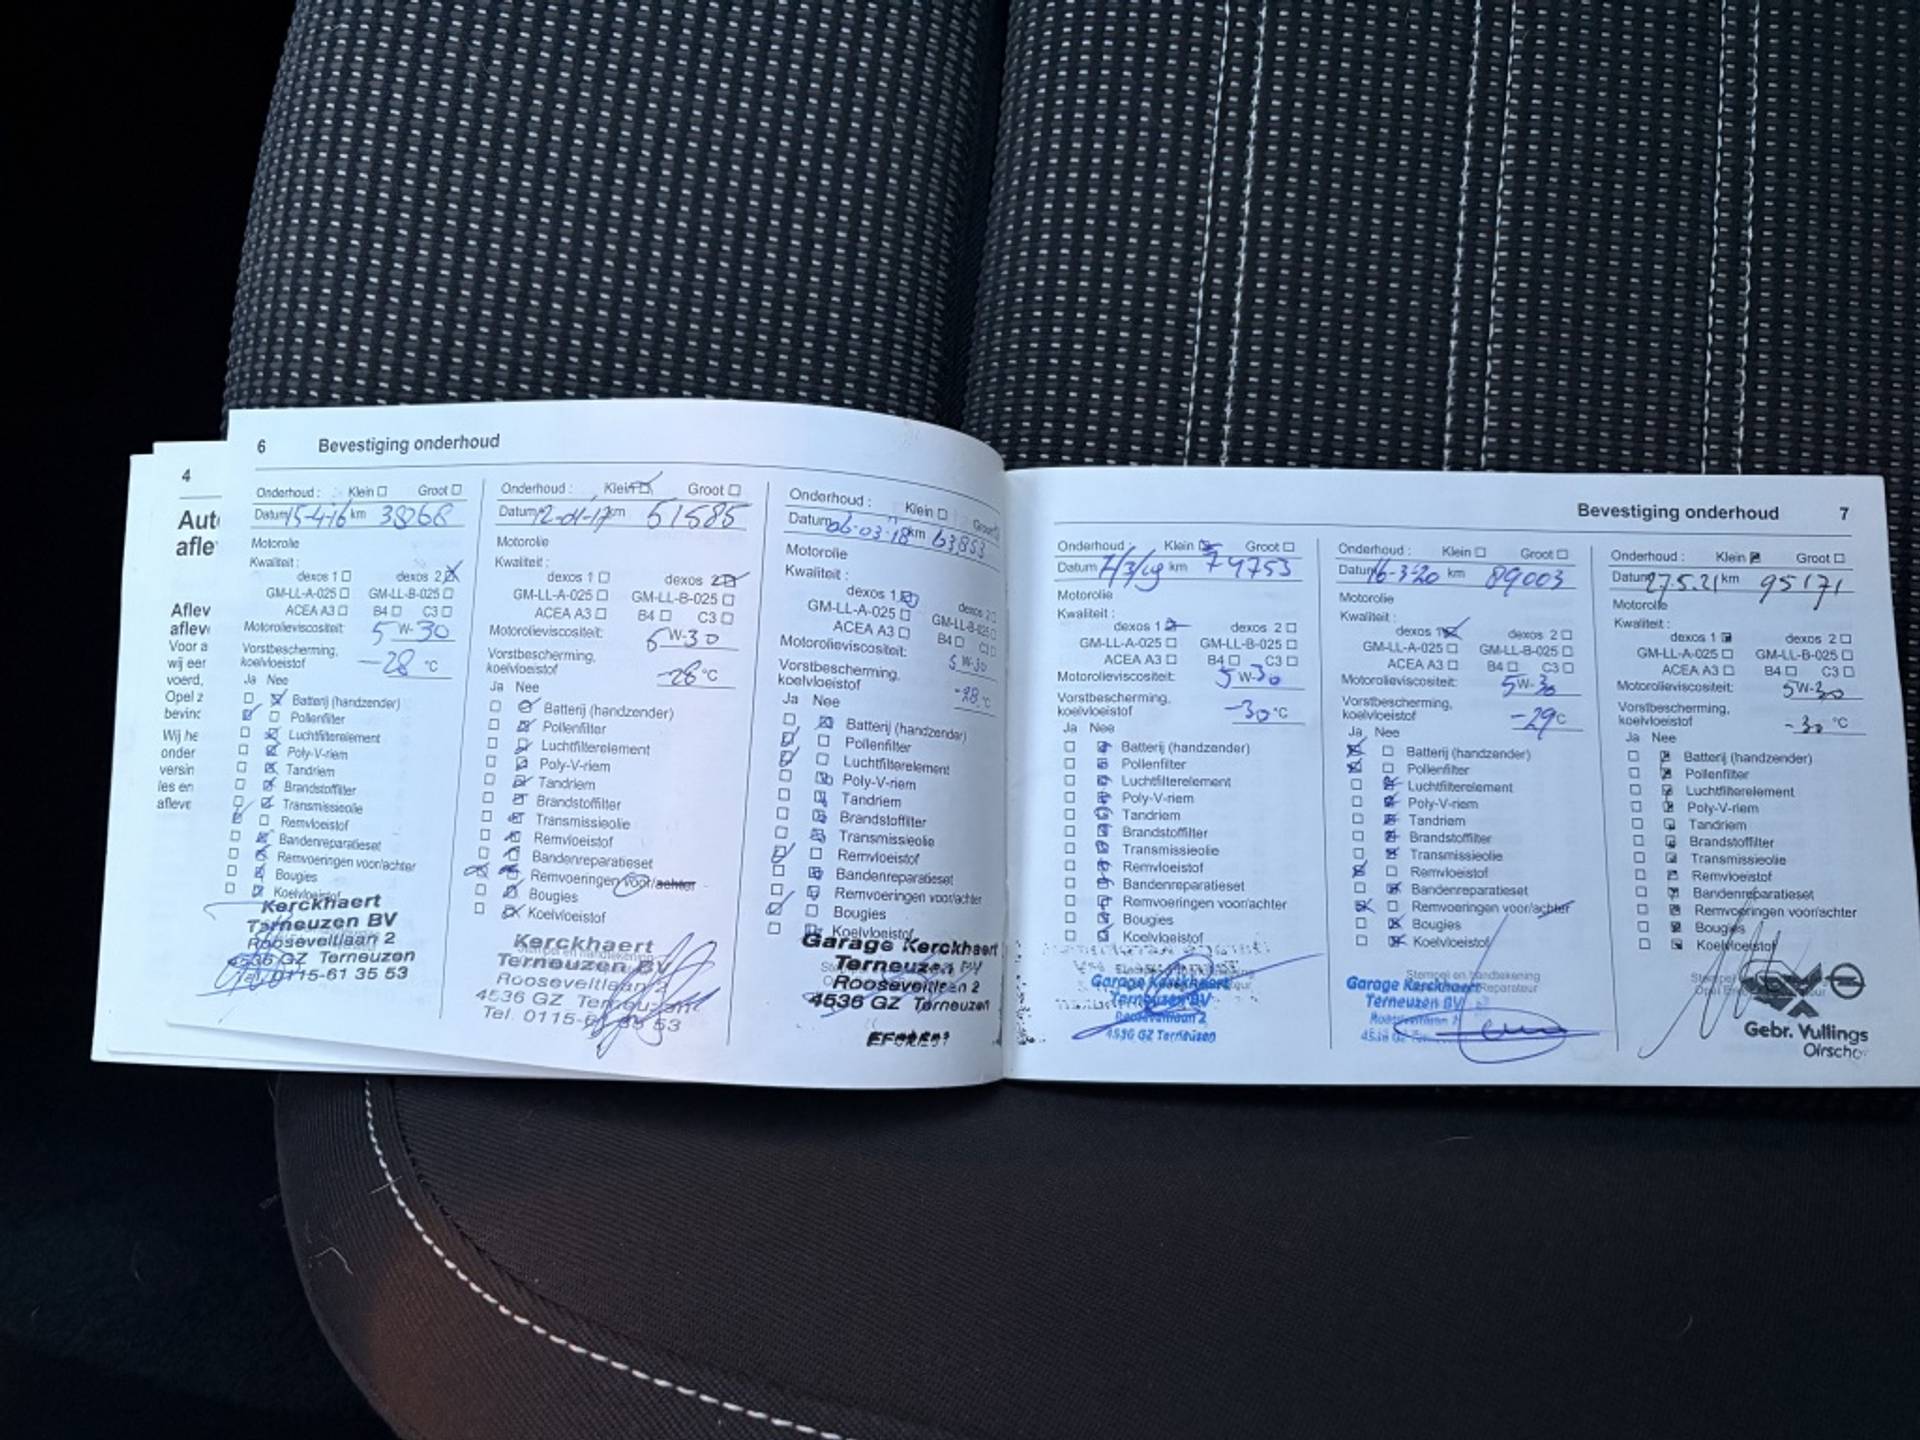 4
Aut
afle
Aflev
aflev
Voor a
wij eer
voerd,
Opel z
bevinc
Wij he
onder
versin
les en
afleve
6 Bevestiging onderhoud
Onderhoud : Klein Groot
Datum 15-4-16 km 38268
Motorolie
Kwaliteit :
dexos 1 dexos 2
GM-LL-A-025 GM-LL-B-025
ACEA A3 B4 C3
Motorolieviscositeit: 5 W-30
Vorstbescherming,
koelvloeistof -28 °C
Ja Nee
Batterij (handzender)
Pollenfilter
Luchtfilterelement
Poly-V-riem
Tandriem
Brandstoffilter
Transmissieolie
Remvloeistof
Bandenreparatieset
Remvoeringen voor/achter
Bougies
Koelvloeistof
Kerckhaert
Terneuzen BV
Rooseveltlaan 2
4536 GZ Terneuzen
Tel. 0115-61 35 53
Onderhoud : Klein Groot
Datum 12-01-17 km 51585
Motorolie
Kwaliteit :
dexos 1 dexos 2
GM-LL-A-025 GM-LL-B-025
ACEA A3 B4 C3
Motorolieviscositeit: 5 W-30
Vorstbescherming,
koelvloeistof -28 °C
Ja Nee
Batterij (handzender)
Pollenfilter
Luchtfilterelement
Poly-V-riem
Tandriem
Brandstoffilter
Transmissieolie
Remvloeistof
Bandenreparatieset
Remvoeringen voor/achter
Bougies
Koelvloeistof
Kerckhaert
Terneuzen BV
Rooseveltlaan 2
4536 GZ Terneuzen
Tel. 0115-61 35 53
Onderhoud : Klein Groot
Datum 06-03-18 km 63853
Motorolie
Kwaliteit :
dexos 1 dexos 2
GM-LL-A-025 GM-LL-B-025
ACEA A3 B4 C3
Motorolieviscositeit:
5 W-30
Vorstbescherming,
koelvloeistof -28 °C
Ja Nee
Batterij (handzender)
Pollenfilter
Luchtfilterelement
Poly-V-riem
Tandriem
Brandstoffilter
Transmissieolie
Remvloeistof
Bandenreparatieset
Remvoeringen voor/achter
Bougies
Koelvloeistof
Garage Kerckhaert
Terneuzen BV
Rooseveltlaan 2
4536 GZ Terneuzen
Bevestiging onderhoud 7
Onderhoud : Klein Groot
Datum 7/3/19 km 79753
Motorolie
Kwaliteit :
dexos 1 dexos 2
GM-LL-A-025 GM-LL-B-025
ACEA A3 B4 C3
Motorolieviscositeit: 5 W-30
Vorstbescherming,
koelvloeistof -30 °C
Ja Nee
Batterij (handzender)
Pollenfilter
Luchtfilterelement
Poly-V-riem
Tandriem
Brandstoffilter
Transmissieolie
Remvloeistof
Bandenreparatieset
Remvoeringen voor/achter
Bougies
Koelvloeistof
Garage Kerckhaert
Terneuzen BV
Rooseveltlaan 2
4536 GZ Terneuzen
Onderhoud : Klein Groot
Datum 16-3-20 km 89003
Motorolie
Kwaliteit :
dexos 1 dexos 2
GM-LL-A-025 GM-LL-B-025
ACEA A3 B4 C3
Motorolieviscositeit: 5W-30
Vorstbescherming,
koelvloeistof -29 °C
Ja Nee
Batterij (handzender)
Pollenfilter
Luchtfilterelement
Poly-V-riem
Tandriem
Brandstoffilter
Transmissieolie
Remvloeistof
Bandenreparatieset
Remvoeringen voor/achter
Bougies
Koelvloeistof
Stempel en handtekening
Reparateur
Garage Kerckhaert
Terneuzen BV
Rooseveltlaan 2
4536 GZ
Onderhoud : Klein Groot
Datum 27.5.21 km 95171
Motorolie
Kwaliteit :
dexos 1 dexos 2
GM-LL-A-025 GM-LL-B-025
ACEA A3 B4 C3
Motorolieviscositeit: 5W-30
Vorstbescherming,
koelvloeistof -30 °C
Ja Nee
Batterij (handzender)
Pollenfilter
Luchtfilterelement
Poly-V-riem
Tandriem
Brandstoffilter
Transmissieolie
Remvloeistof
Bandenreparatieset
Remvoeringen voor/achter
Bougies
Koelvloeistof
Gebr. Vullings
Oirscho